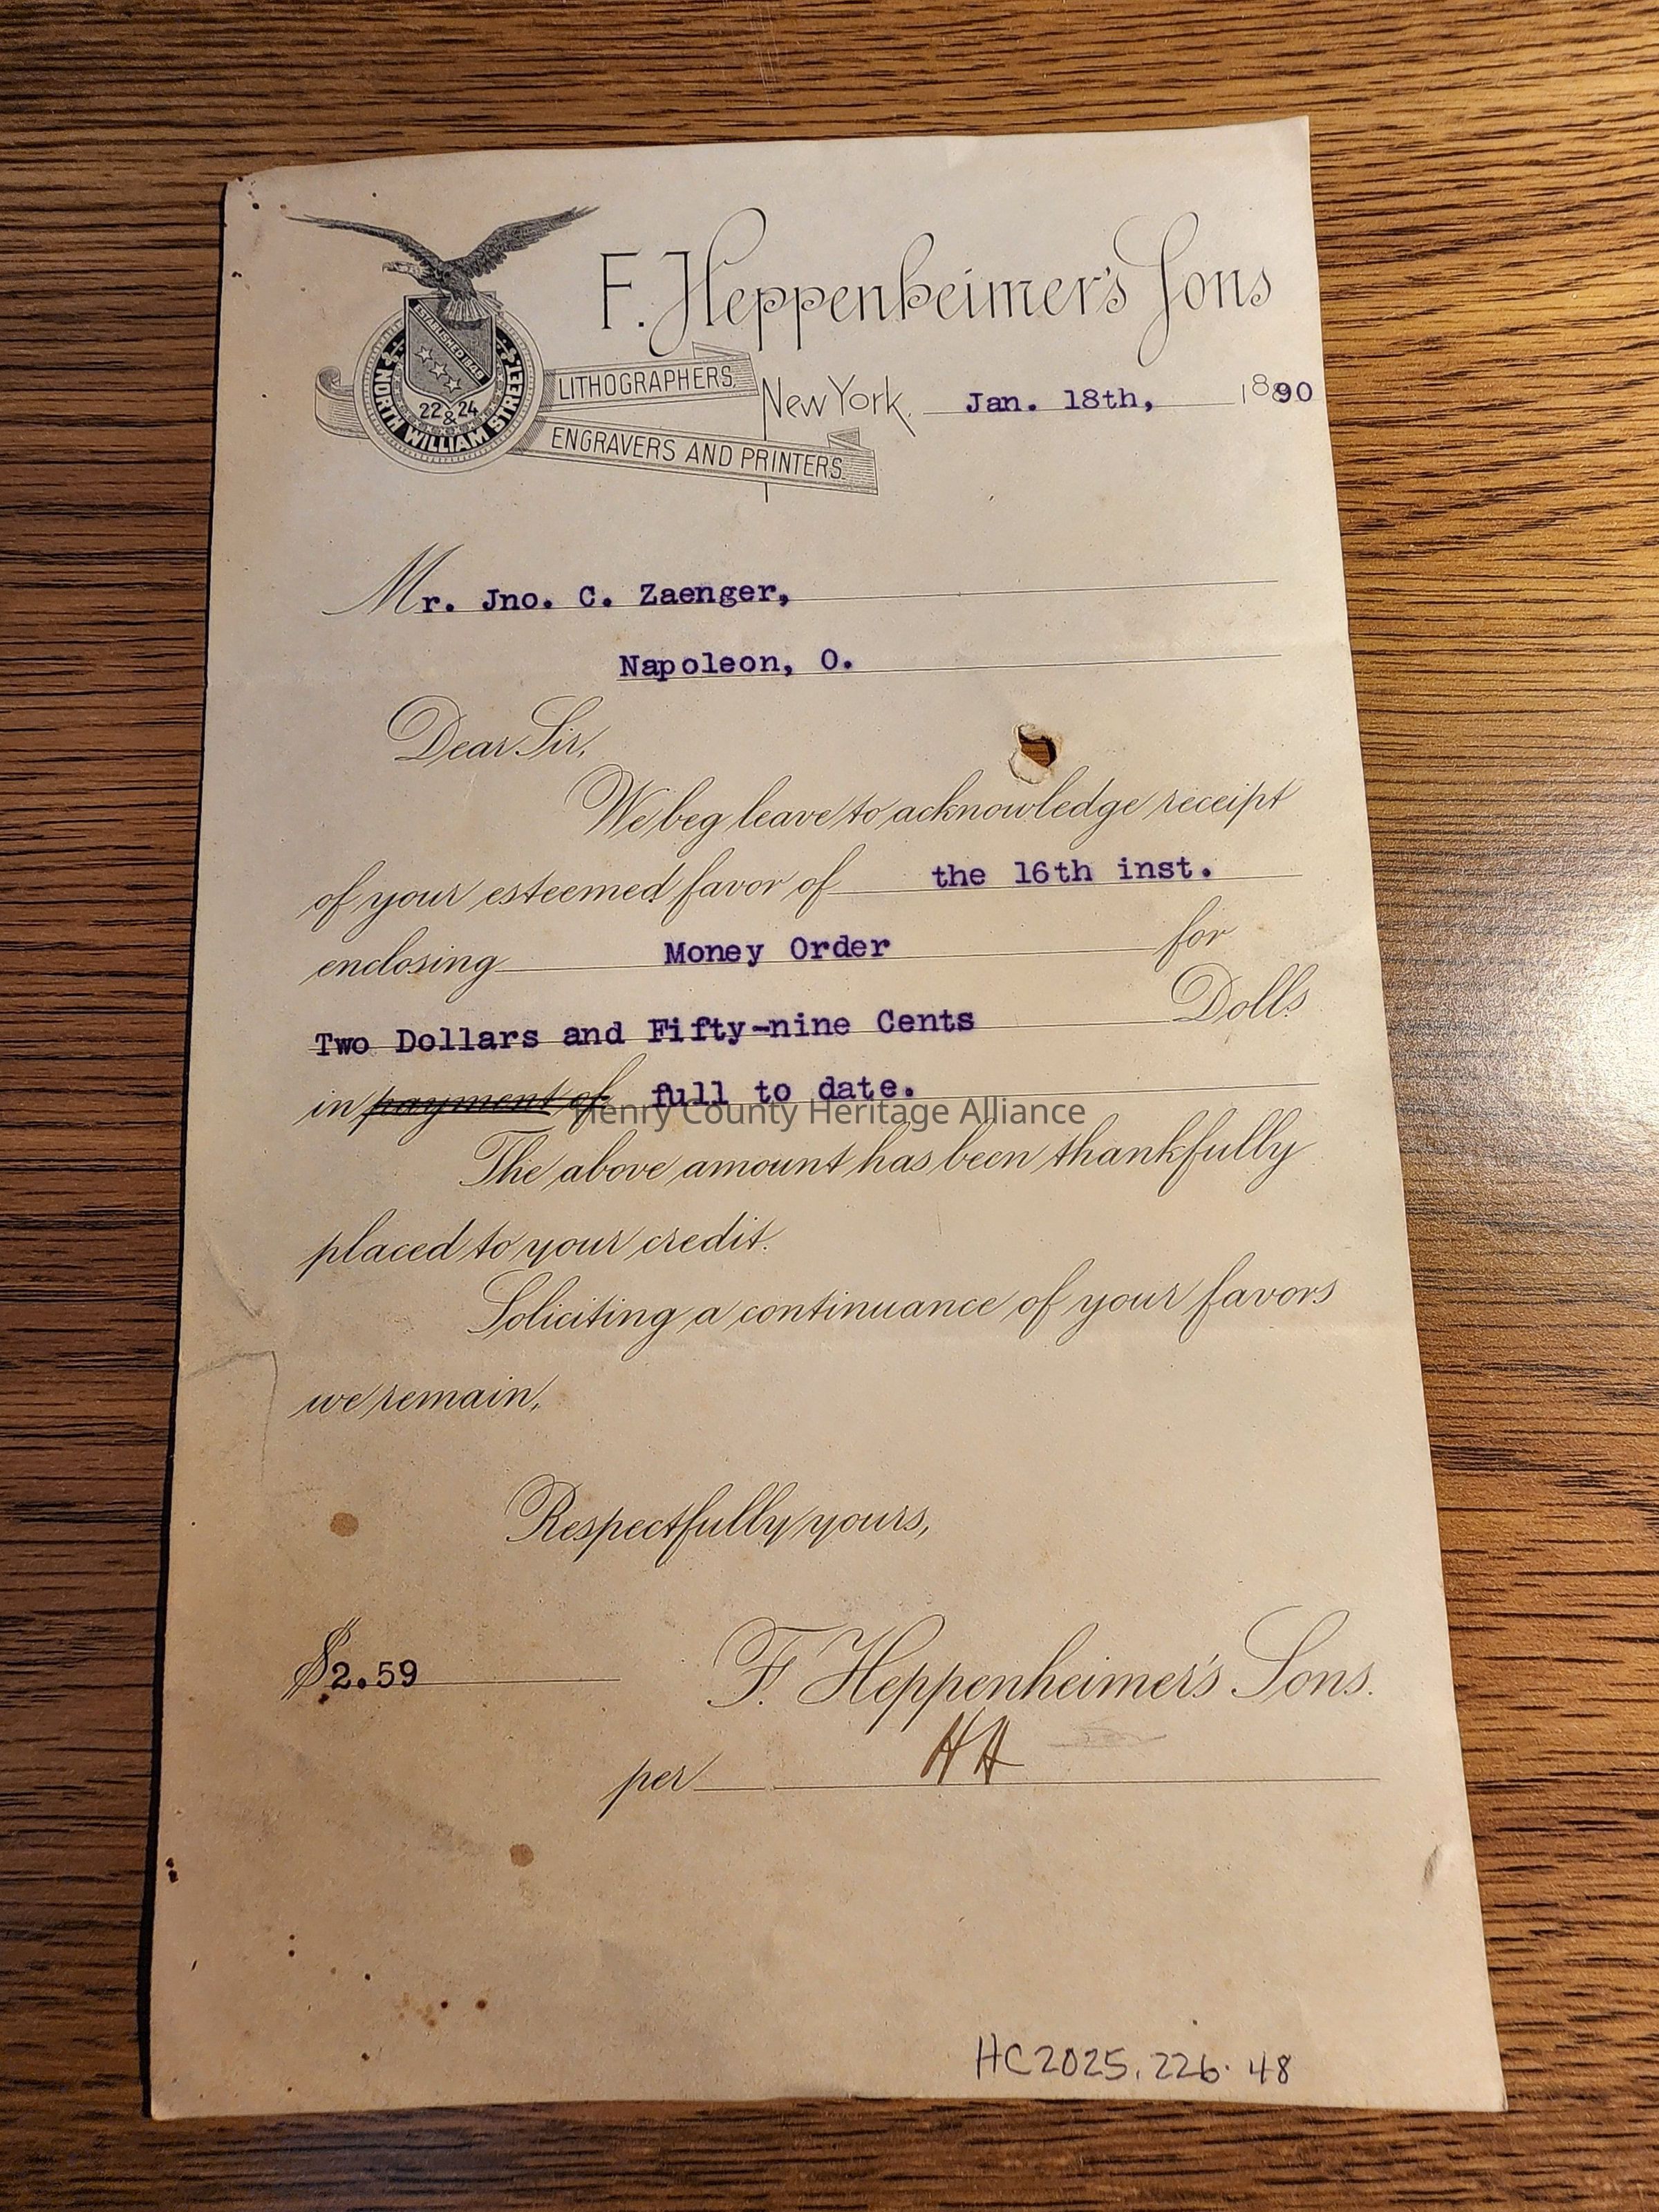 F. Heppenheimer's Sons
ESTABLISHED 1849
22 & 24
NORTH WILLIAM STREET
LITHOGRAPHERS,
ENGRAVERS AND PRINTERS.
New York, Jan. 18th, 1890
Mr. Jno. C. Zaenger,
Napoleon, O.
Dear Sir,
We beg leave to acknowledge receipt
of your esteemed favor of the 16th inst.
enclosing Money Order for
Two Dollars and Fifty-nine Cents Dolls
in payment of full to date.
Henry County Heritage Alliance
The above amount has been thankfully
placed to your credit.
Soliciting a continuance of your favors
we remain,
Respectfully yours,
$2.59 F. Heppenheimer's Sons.
per HH
HC2025.226.48